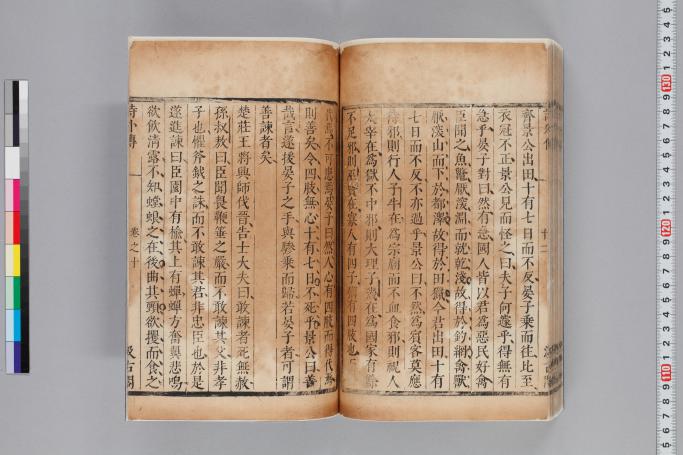 齊景公出田十有七日而不反晏子乘而往比至
衣冠不正景公見而怪之曰夫子何遽乎得無有
急乎晏子對曰然有急國人皆以君爲惡民好禽
臣聞之魚鼈厭深淵而就乾淺故得於釣網禽獸
厭深山而下於都澤故得於田獵今君出田十有
七日而不反不亦過乎景公曰不然爲賓客莫應
待邪則行人子牛在爲宗廟而不血食邪則祝人
太宰在爲獄不中邪則大理子幾在爲國家有餘
不足邪則巫賢在寡人有四子猶有四肢也
不可患焉晏子曰然人心有四肢而得代焉
則善矣令四肢無心十有七日不死乎景公曰善
哉言遂援晏子之手與驂乘而歸若晏子者可謂
善諫者矣
楚莊王將興師伐晉告士大夫曰敢諫者死無赦
孫叔敖曰臣聞畏鞭箠之嚴而不敢諫其父非孝
子也懼斧鉞之誅而不敢諫其君非忠臣也於是
遂進諫曰臣園中有榆其上有蟬蟬方奮翼悲鳴
欲飲清露不知螳螂之在後曲其頸欲攫而食之
詩外傳
卷之十
汲古閣